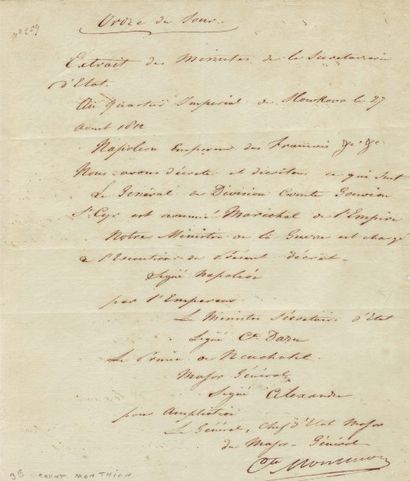 Ordre du Jour.
Extrait des Minutes de la Secretairerie
d'Etat.
Au Quartier Imperial de le 27
aout 1812
Napoleon Empereur des Francois &c &c
Nous avons décreté et décretons ce qui suit
Le Général de Division Comte Gouvion
St Cyr est nommé Maréchal de l'Empire
Notre Ministre de la Guerre est chargé
de l'Execution du Present décret.
Signé Napoléon
par l'Empereur
Le Ministre Secrétaire d'Etat
Signé Cte Daru
Le Prince de Neuchatel
Major Général
Signé Alexandre
pour Ampliation
Le Général, Chef d'Etat Major
du Major-Général
Cte Monthion
COUNT MONTHION